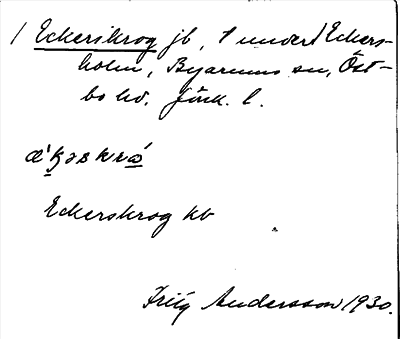 / Eckerskrog jb, † under Eckers-
holm, Byarums sn, Öst-
bo hd. Jönk. l.
Eckerskrog kb
Andersson 1930.